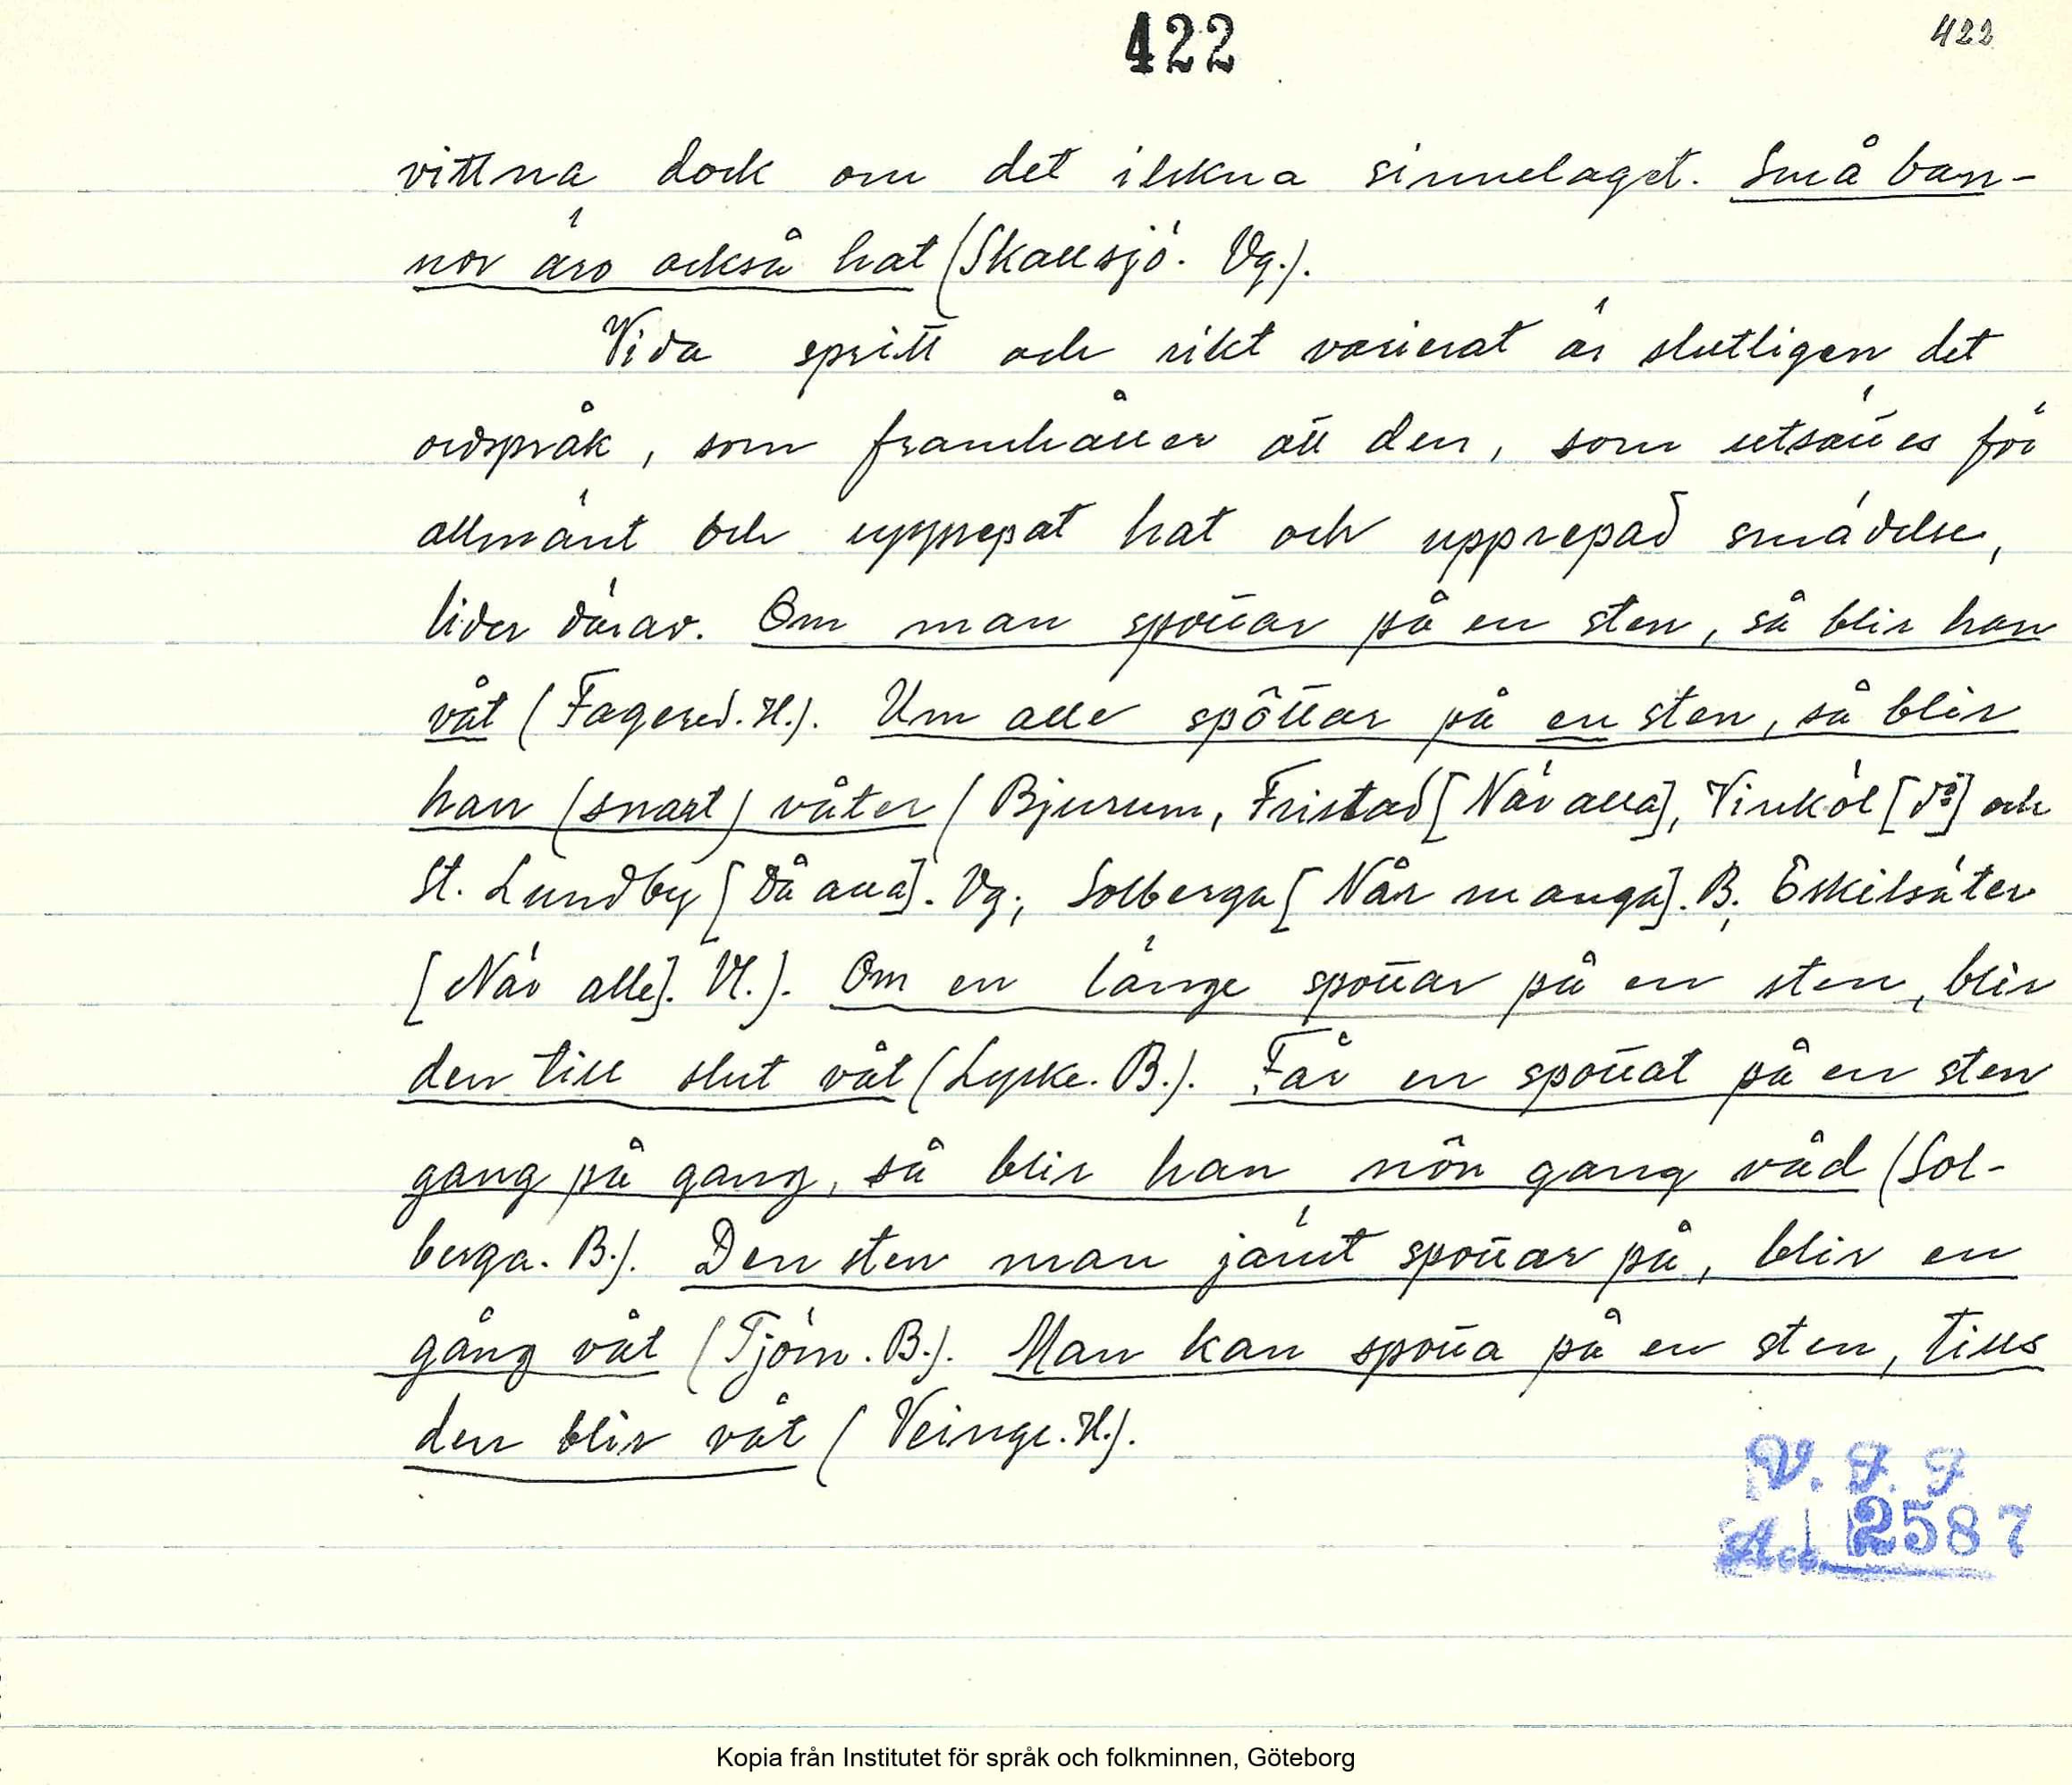 422
422
vittna dock om det ilskna sinnelaget. Små ban-
nor äro också hat (Skallsjö. Vg.).
Vida spritt och rikt varierat är slutligen det
ordspråk, som framhåller att den, som utsättes för
allmänt och upprepat hat och upprepad smädelse,
lider därav. Om man spottar på en sten, så blir han
våt (Fagered. H.). Um alle spôttar på en sten, så blir
han (snart) våter (Bjurum, Fristad [När alla], Vinköl [do] och
St. Lundby [Då alla]. Vg.; Solberga [Når manga]. B.; Eskilsäter
[När alle]. Vl.). Om en länge spottar på en sten, blir
den till slut våt (Lycke. B.). Får en spottat på en sten
gang på gang, så blir han nôn gang våd (Sol-
berga. B.). Den sten man jämt spottar på, blir en
gång våt (Tjörn. B.). Man kan spotta på en sten, tills
den blir våt (Veinge. H.).
V. F. F.
Acc. 2587
Kopia från Institutet för språk och folkminnen, Göteborg